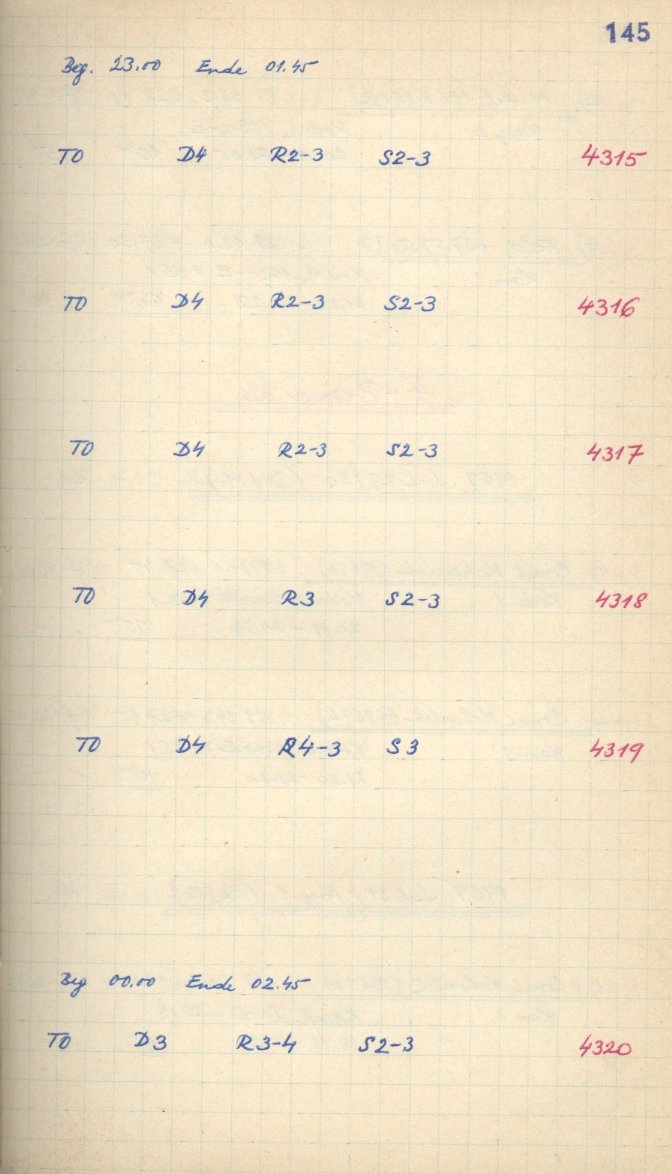 145
Beg. 23.00 Ende 01.45
TO D4 R2-3 S2-3 4315
TO D4 R2-3 S2-3 4316
TO D4 R2-3 S2-3 4317
TO D4 R3 S2-3 4318
TO D4 R4-3 S3 4319
Beg 00.00 Ende 02.45
TO D3 R3-4 S2-3 4320